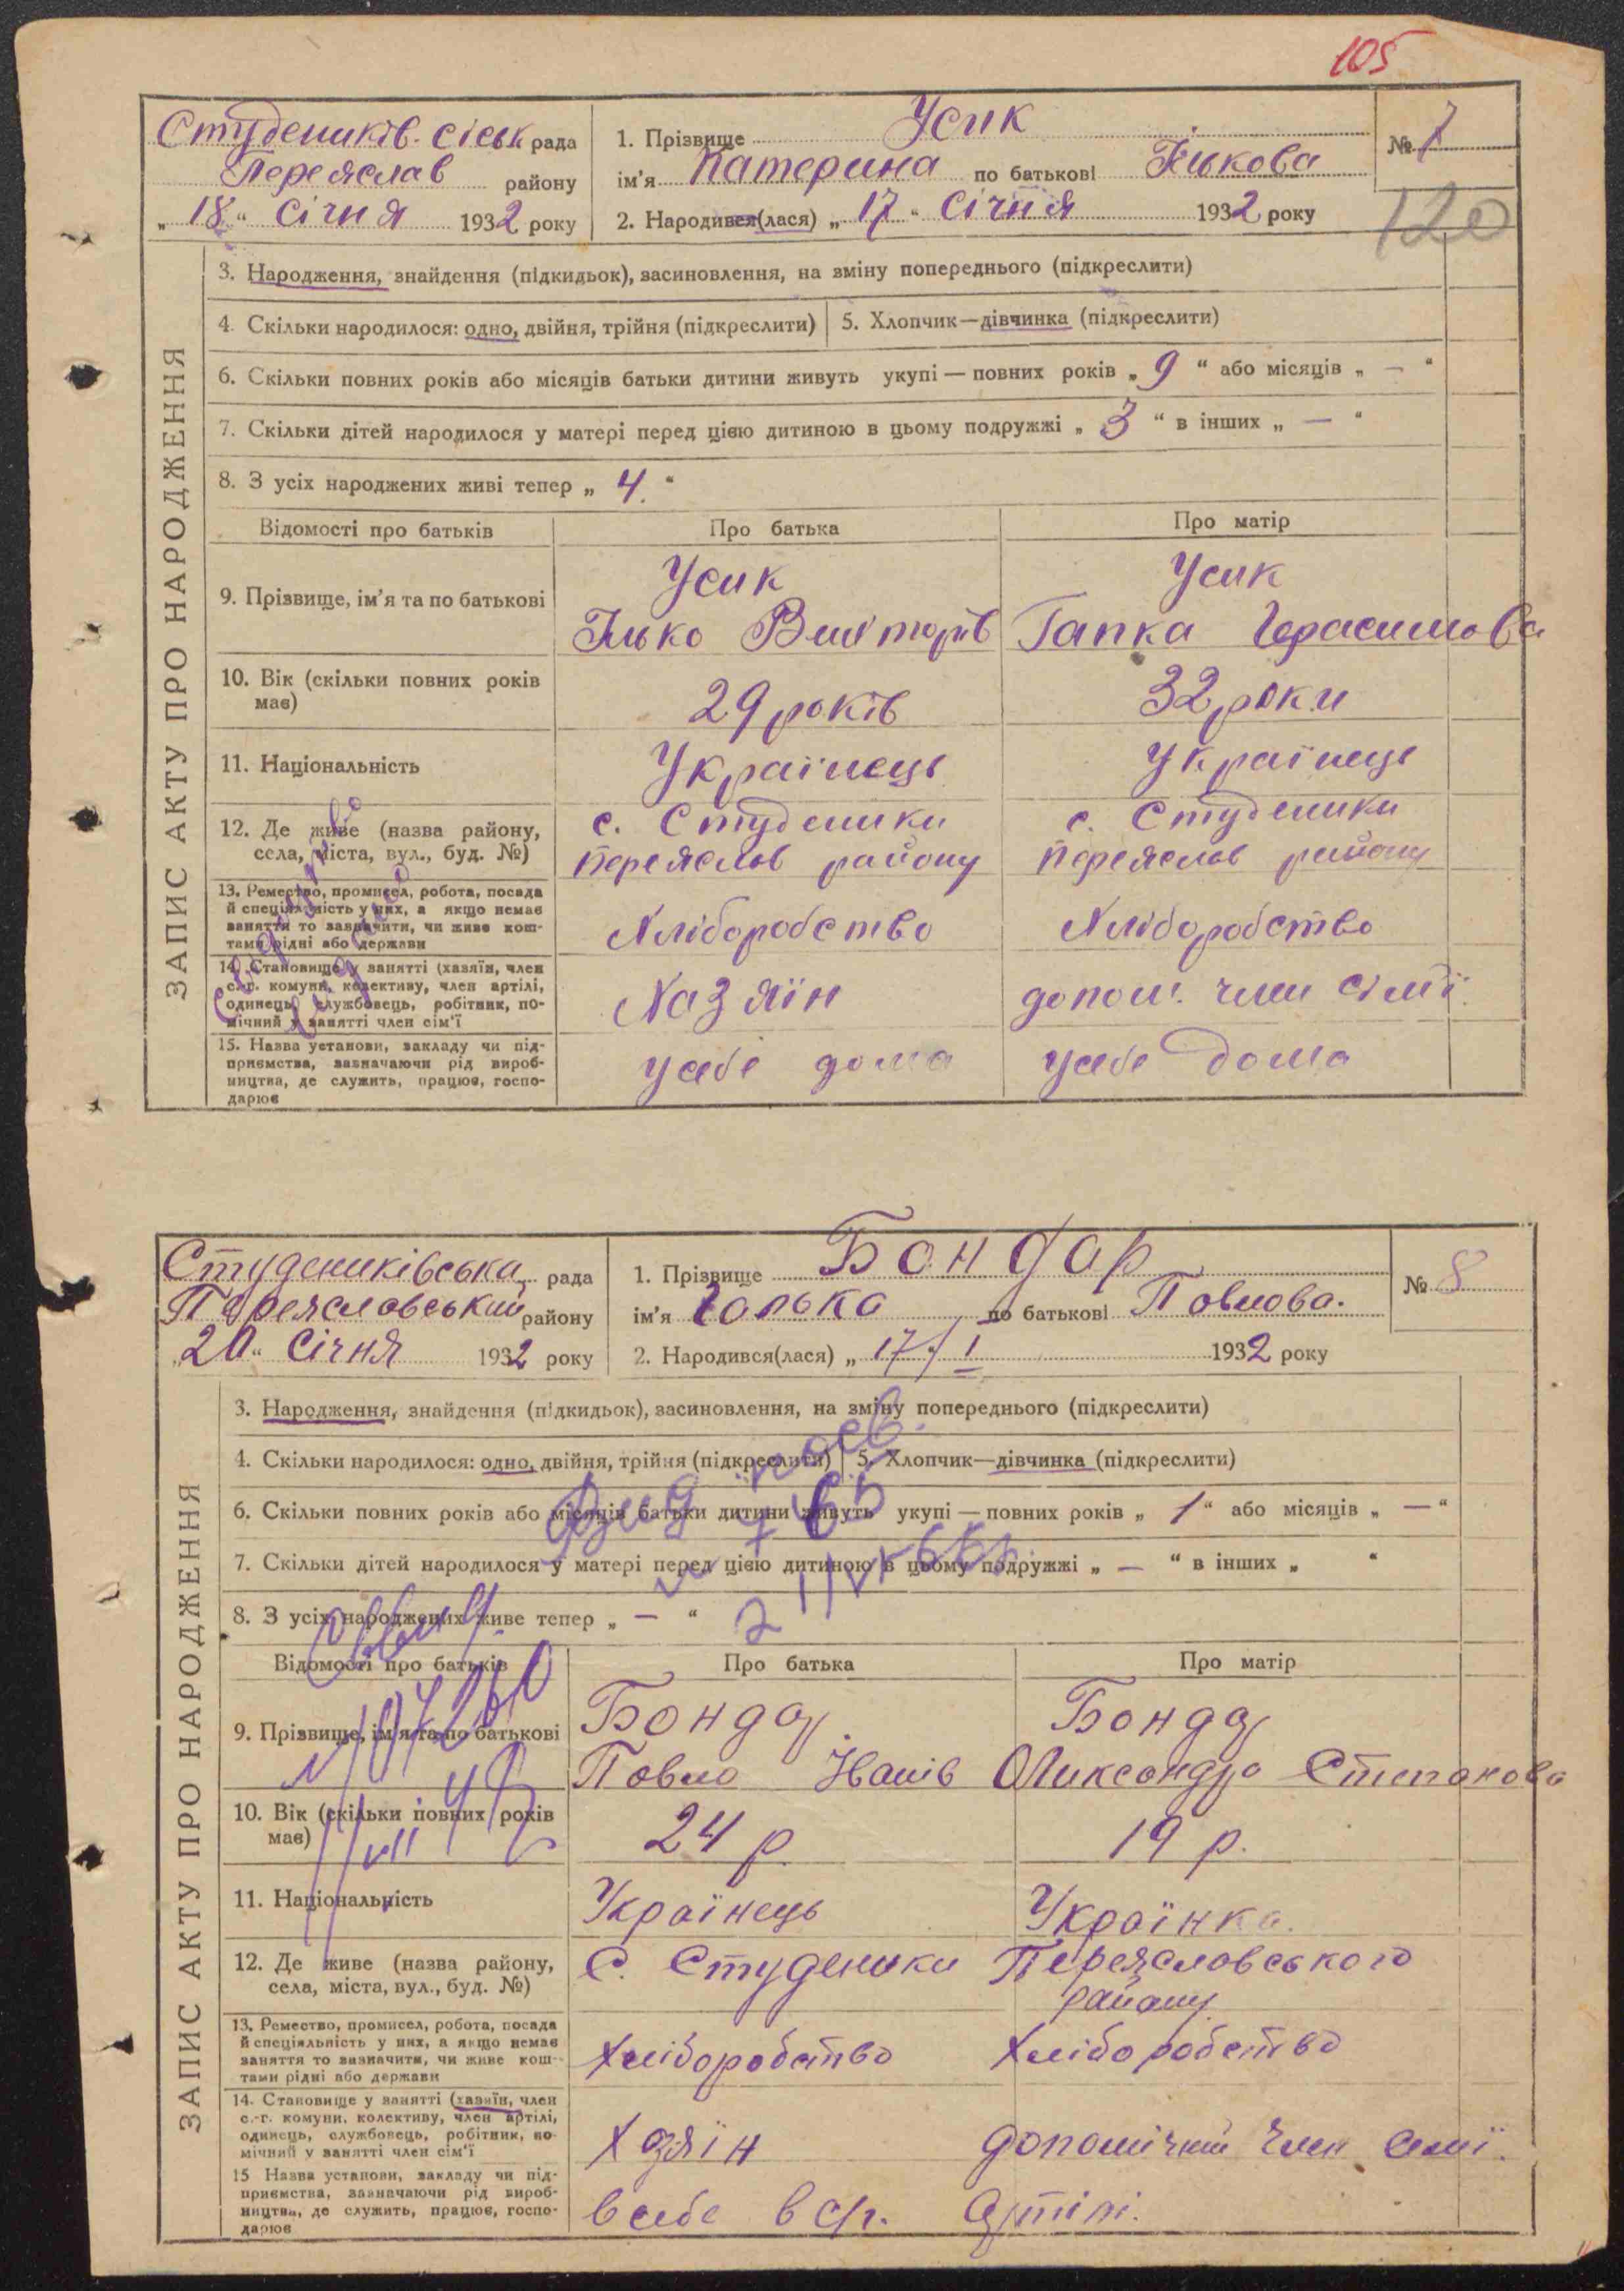 105
Студеників. сіськ рада
Переяслав району
„18“ Січня 1932 року
1. Прізвище Усик
ім’я Катерина по батькові Ількова
2. Народився(лася) „17“ Січня 1932 року
№ 7
120
ЗАПИС АКТУ ПРО НАРОДЖЕННЯ
3. Народження, знайдення (підкидьок), засиновлення, на зміну попереднього (підкреслити)
4. Скільки народилося: одно, двійня, трійня (підкреслити) 5. Хлопчик—дівчинка (підкреслити)
6. Скільки повних років або місяців батьки дитини живуть укупі — повних років „ 9 “ або місяців „ — “
7. Скільки дітей народилося у матері перед цією дитиною в цьому подружжі „ 3 “ в інших „ — “
8. З усіх народжених живі тепер „ 4. “
Відомості про батьків Про батька Про матір
9. Прізвище, ім’я та по батькові
Усик Усик
Ілько Вікторів Гапка Герасимова
10. Вік (скільки повних років має)
29 років 32 роки
11. Національність
Українець Українець
12. Де живе (назва району, села, міста, вул., буд. №)
с. Студеники с. Студеники
Переяслов району Переяслов району
13. Ремество, промисел, робота, посада й спеціяльність у них, а якщо немає заняття то зазначити, чи живе коштами рідні або держави
Хліборобство Хліборобство
14. Становище у занятті (хазяїн, член с.-г. комуни, колективу, член артілі, одинець, службовець, робітник, помічний у занятті член сім’ї
Хазяїн допом. член сімї.
15. Назва установи, закладу чи підприємства, зазначаючи рід виробництва, де служить, працює, господарює
у себе дома у себе дома
Студениківська рада
Переясловський району
„20“ Січня 1932 року
1. Прізвище Бондар
ім’я Галька по батькові Повлова.
2. Народився(лася) „17/I 1932 року
№ 8
ЗАПИС АКТУ ПРО НАРОДЖЕННЯ
3. Народження, знайдення (підкидьок), засиновлення, на зміну попереднього (підкреслити)
4. Скільки народилося: одно, двійня, трійня (підкреслити) 5. Хлопчик—дівчинка (підкреслити)
6. Скільки повних років або місяців батьки дитини живуть укупі — повних років „ 1 “ або місяців „ — “
7. Скільки дітей народилося у матері перед цією дитиною в цьому подружжі „ — “ в інших „ “
8. З усіх народжених живе тепер „ — “
Відомості про батьків Про батька Про матір
9. Прізвище, ім’я та по батькові
Бондар Бондар
Повло Іванів Олександра Степонова
10. Вік (скільки повних років має)
24 р. 19 р.
11. Національність
Українець Українка.
12. Де живе (назва району, села, міста, вул., буд. №)
С. Студеники Переясловського
району
13. Ремество, промисел, робота, посада й спеціяльність у них, а якщо немає заняття то зазначити, чи живе коштами рідні або держави
Хліборобство Хліборобство
14. Становище у занятті (хазяїн, член с.-г. комуни, колективу, член артілі, одинець, службовець, робітник, помічний у занятті член сім’ї
Хозяїн допомічний член семї.
15 Назва установи, закладу чи підприємства, зазначаючи рід виробництва, де служить, працює, господарює
в себе в с/г. Артілі.